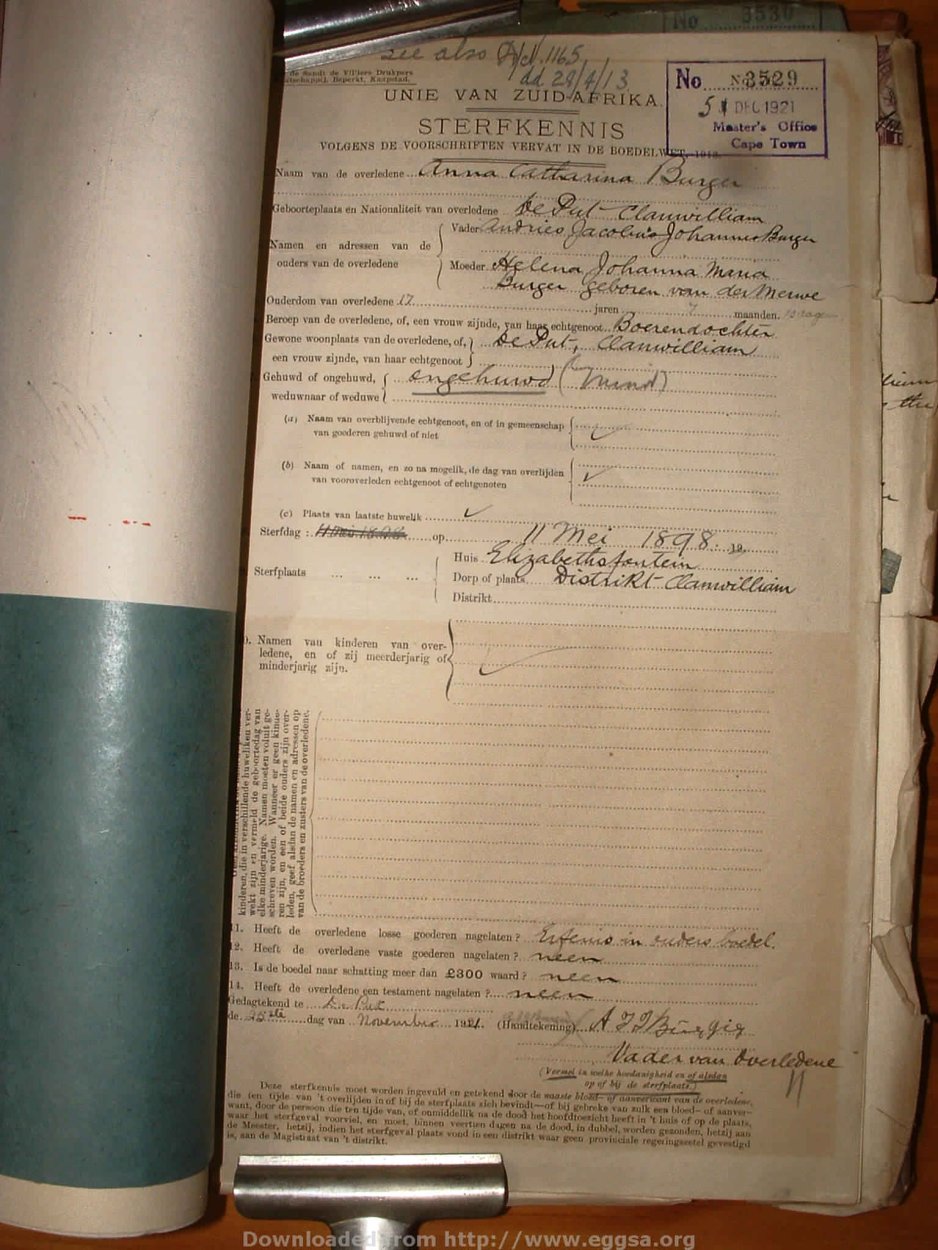 see also
dd 29/4/13
de Sandt de Villiers Drukpers
Maatschappij, Beperkt, Kaapstad.
UNIE VAN ZUID-AFRIKA.
No
No 3529
5 DEC 1921
Master's Office
Cape Town
STERFKENNIS
VOLGENS DE VOORSCHRIFTEN VERVAT IN DE BOEDELWET, 1913.
Naam van de overledene Anna Catharina Burger
Geboorteplaats en Nationaliteit van overledene De Put Clanwilliam
Namen en adressen van de ouders van de overledene
Vader Andries Jacobus Johannes Burger
Moeder Helena Johanna Maria
Burger geboren van der Merwe
Ouderdom van overledene 17 jaren 7 maanden. 15 dagen
Beroep van de overledene, of, een vrouw zijnde, van haar echtgenoot Boerendochter
Gewone woonplaats van de overledene, of, De Put, Clanwilliam
een vrouw zijnde, van haar echtgenoot
Gehuwd of ongehuwd, ongehuwd (mind)
weduwnaar of weduwe
(a) Naam van overblijvende echtgenoot, en of in gemeenschap
van goederen gehuwd of niet
(b) Naam of namen, en zo na mogelik, de dag van overlijden
van vooroverleden echtgenoot of echtgenoten
(c) Plaats van laatste huwelik
Sterfdag : op 11 Mei 1898. 19
Sterfplaats ... ... ...
Huis Elizabethsfontein
Dorp of plaats Distrikt Clanwilliam
Distrikt
Namen van kinderen van over-
ledene, en of zij meerderjarig of
minderjarig zijn.
kinderen, die in verschillende huweliken ver-
wekt zijn en vermeld de geboortedag van
elke minderjarige. Namen moeten voluit ge-
schreven worden. Wanneer er geen kinde-
ren zijn, en een of beide ouders zijn over-
leden, geef alsdan de namen en adressen op
van de broeders en zusters van de overledene.
11. Heeft de overledene losse goederen nagelaten? Erfenis in ouders boedel.
12. Heeft de overledene vaste goederen nagelaten? neen
13. Is de boedel naar schatting meer dan £300 waard? neen
14. Heeft de overledene een testament nagelaten? neen
Gedagtekend te De Put
de 25ste dag van November 1921. (Handtekening) A J J Burger
Vader van Overledene
(Vermel in welke hoedanigheid en of alsdan
op of bij de sterfplaats.)
Deze sterfkennis moet worden ingevuld en getekend door de naaste bloed- of aanverwant van de overledene,
die ten tijde van 't overlijden in of bij de sterfplaats zich bevindt—of bij gebreke van zulk een bloed- of aanver-
want, door de persoon die ten tijde van, of onmiddellik na de dood het hoofdtoezicht heeft in 't huis of op de plaats,
waar het sterfgeval voorviel, en moet, binnen veertien dagen na de dood, in dubbel, worden gezonden, hetzij aan
de Meester, hetzij, indien het sterfgeval plaats vond in een distrikt waar geen provinciale regeringszetel gevestigd
is, aan de Magistraat van 't distrikt.
Downloaded from http://www.eggsa.org